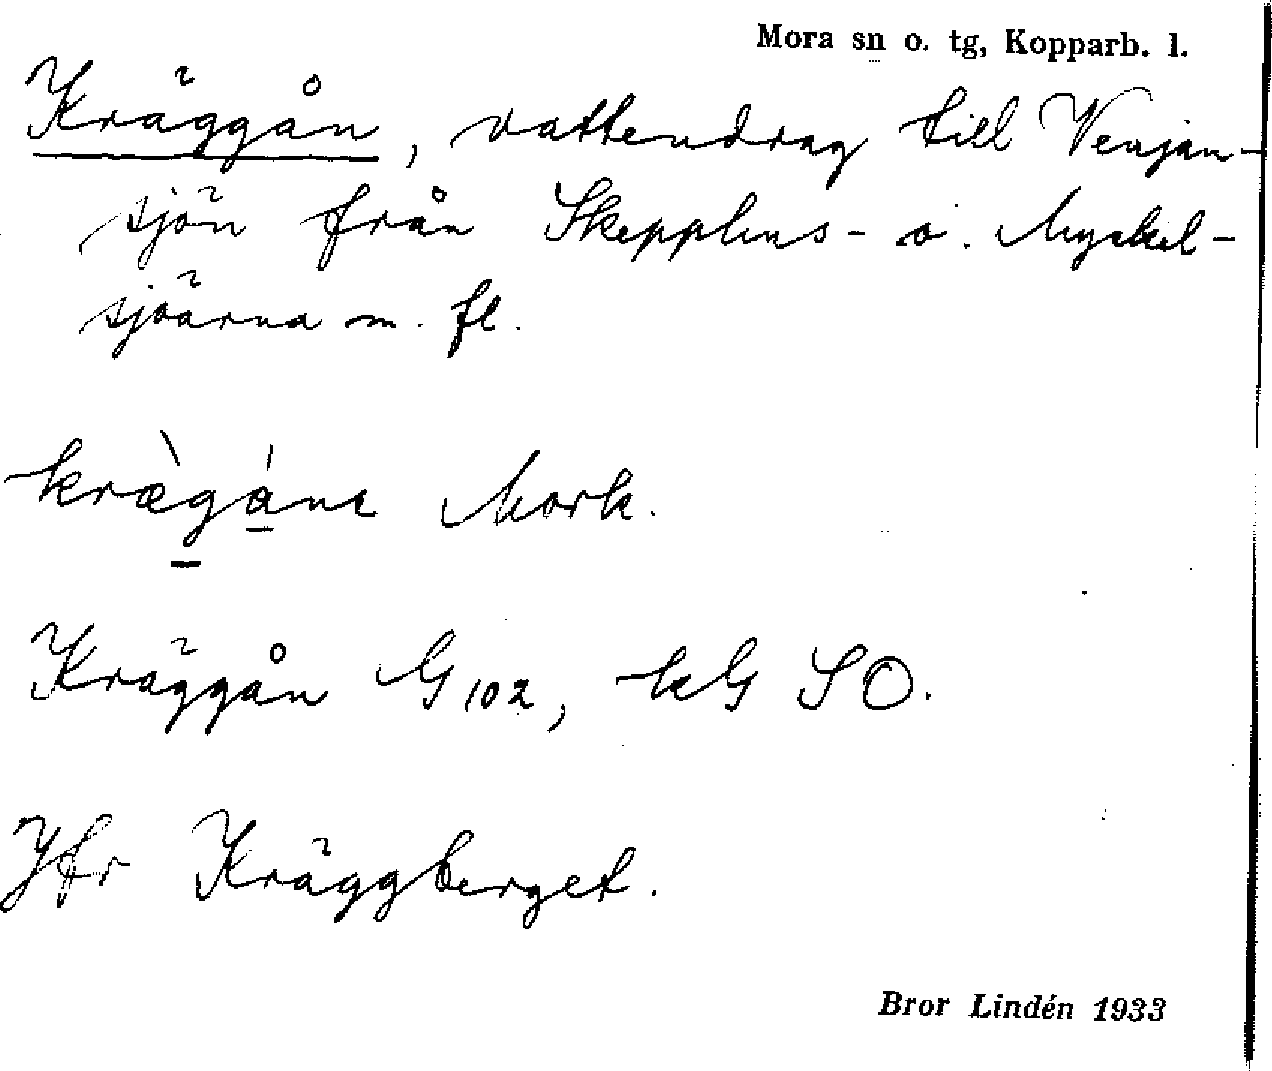 Mora sn o. tg, Kopparb. l.
Kräggån, vattendrag till Venjan-
sjön från Skepplins- o. Myckel-
sjöarna m. fl.
Mork.
Kräggån G 102, kG SO.
Jfr Kräggberget.
Bror Lindén 1933